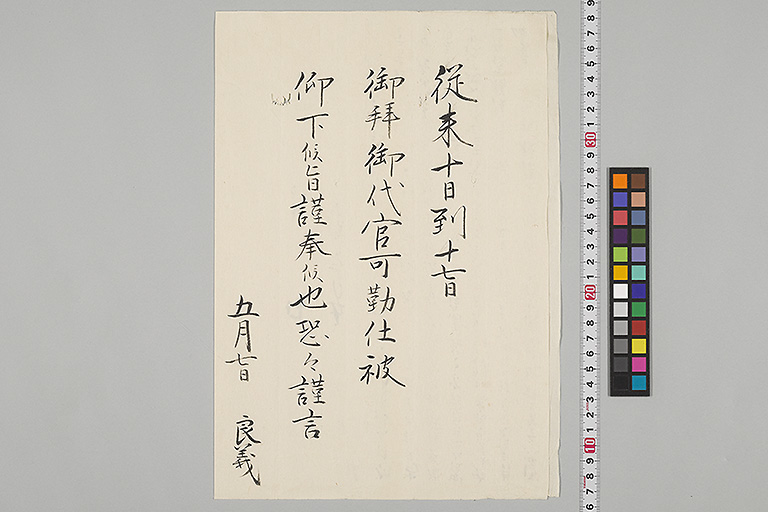 従来十日到十七日
御拜御代官可勤仕被
仰下候旨謹奉候也恐々謹言
五月七日 良義